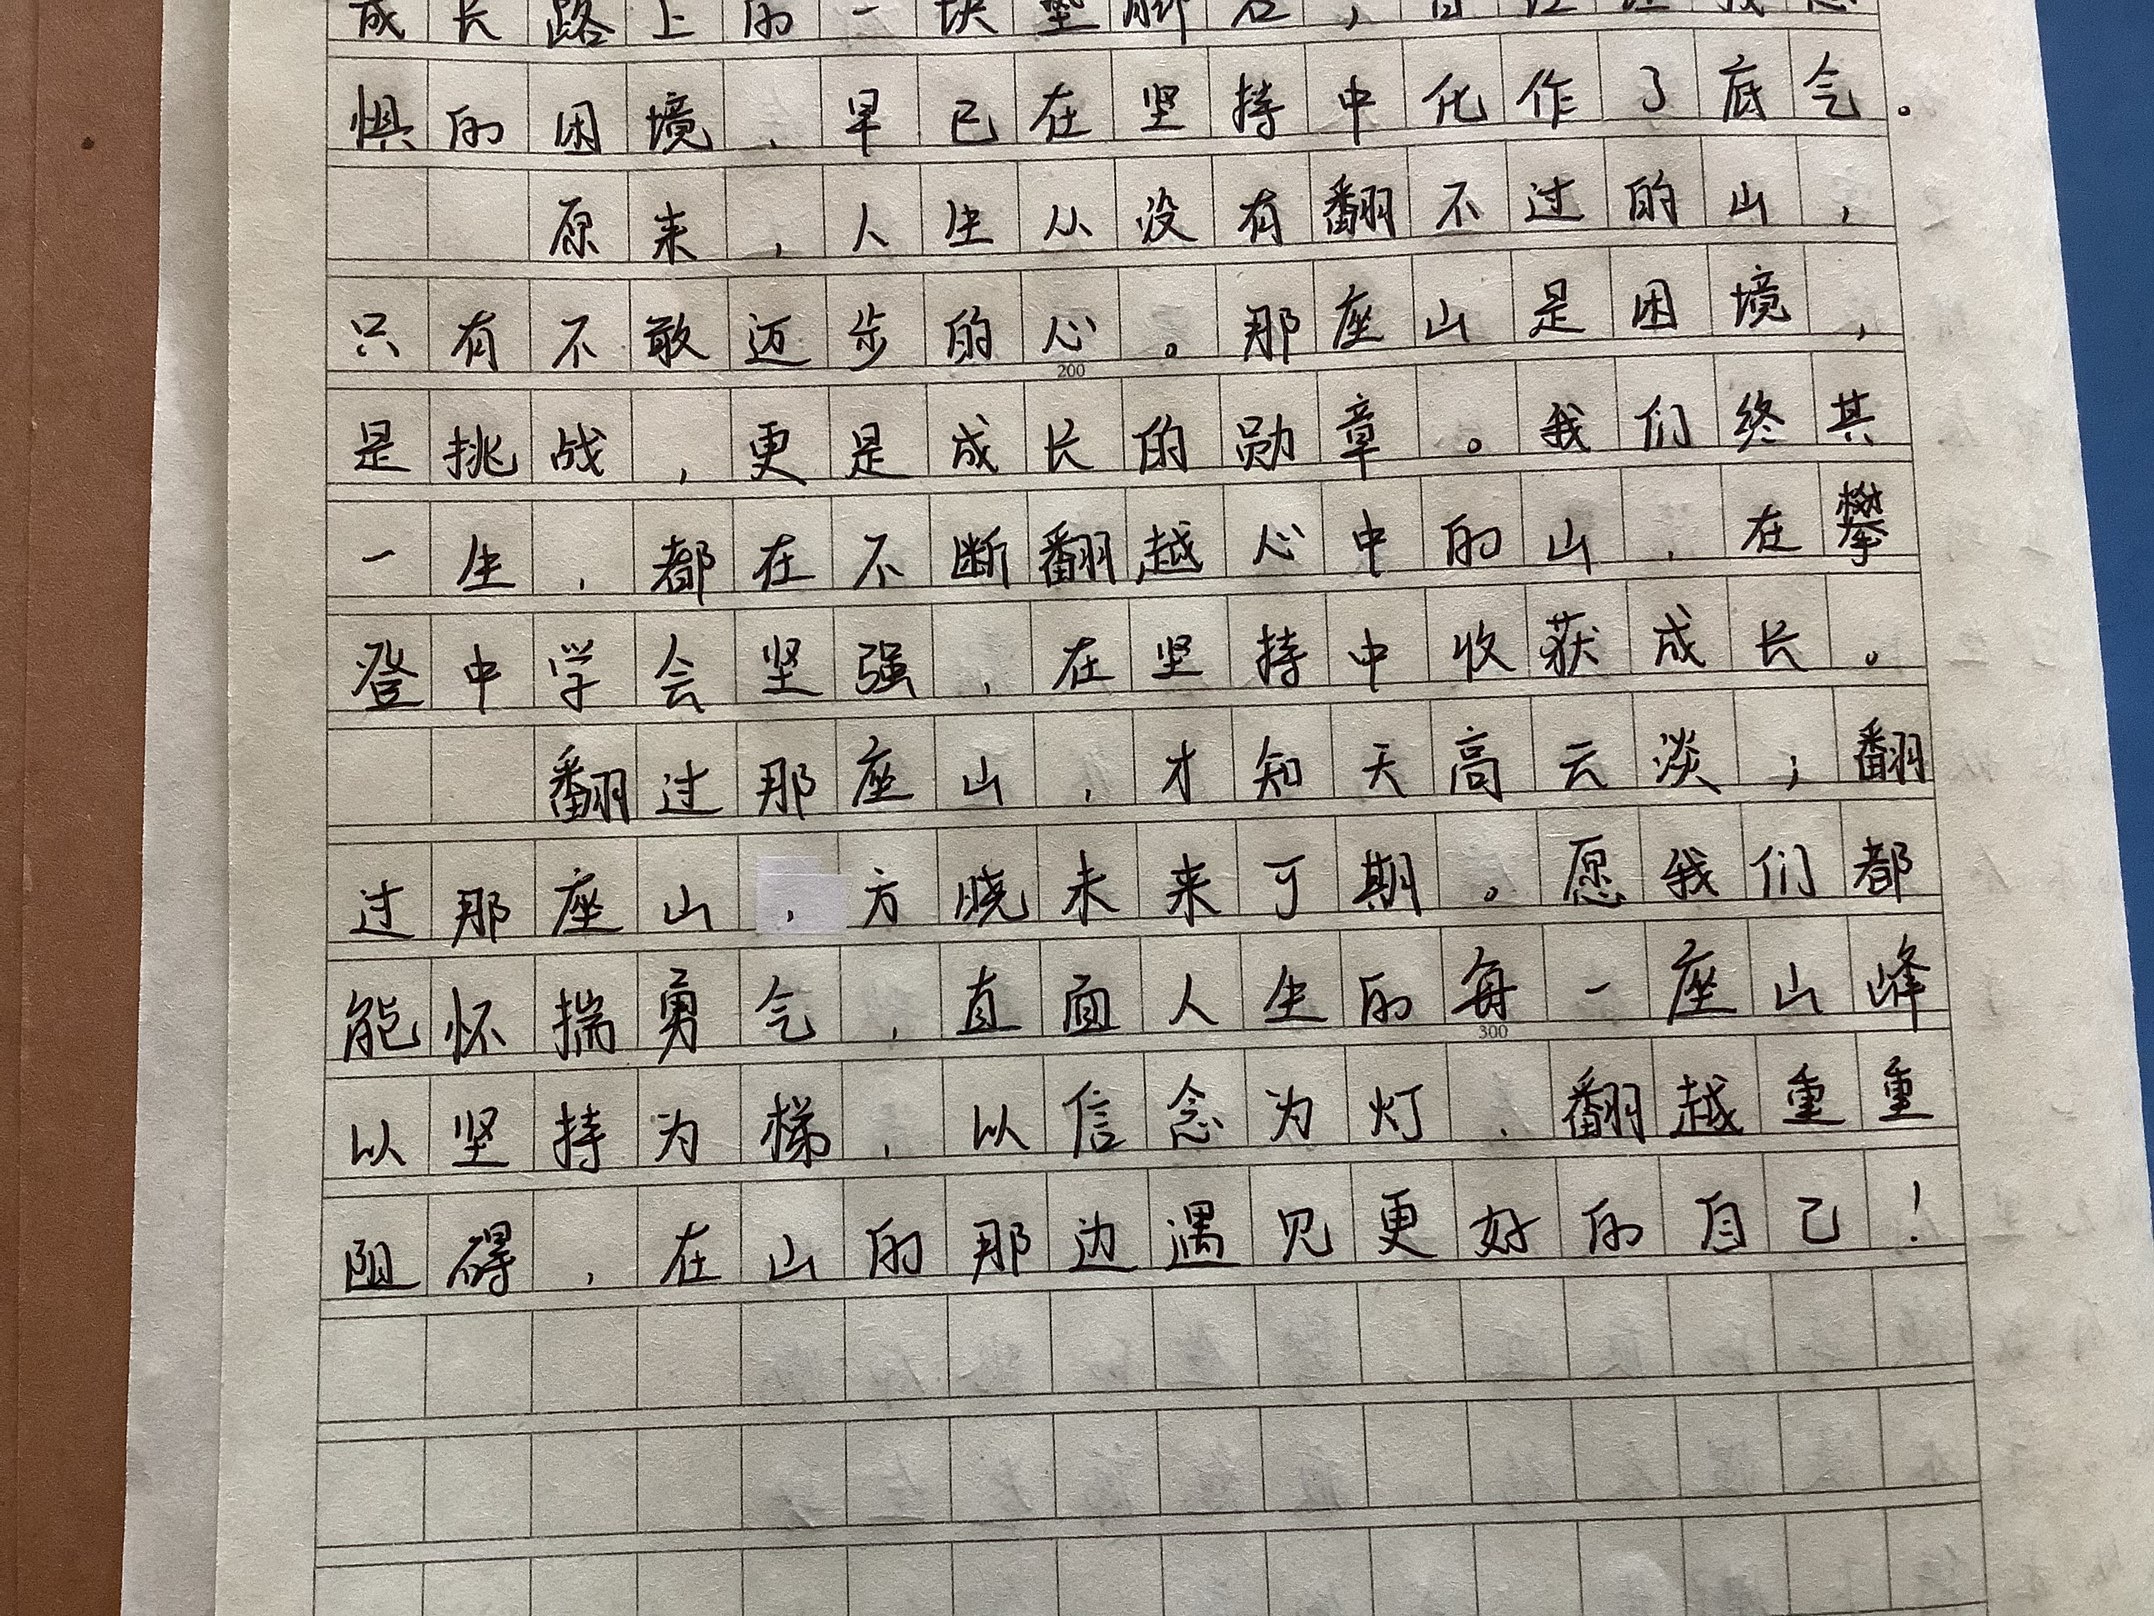 成长路上的一块垫脚石，曾经让我恐
惧的困境，早已在坚持中化作了底气。
原来，人生从没有翻不过的山，
只有不敢迈步的心。那座山是困境，
200
是挑战，更是成长的勋章。我们终其
一生，都在不断翻越心中的山，在攀
登中学会坚强，在坚持中收获成长。
翻过那座山，才知天高云淡；翻
过那座山，方晓未来可期。愿我们都
能怀揣勇气，直面人生的每一座山峰
300
以坚持为梯，以信念为灯，翻越重重
阻碍，在山的那边遇见更好的自己！